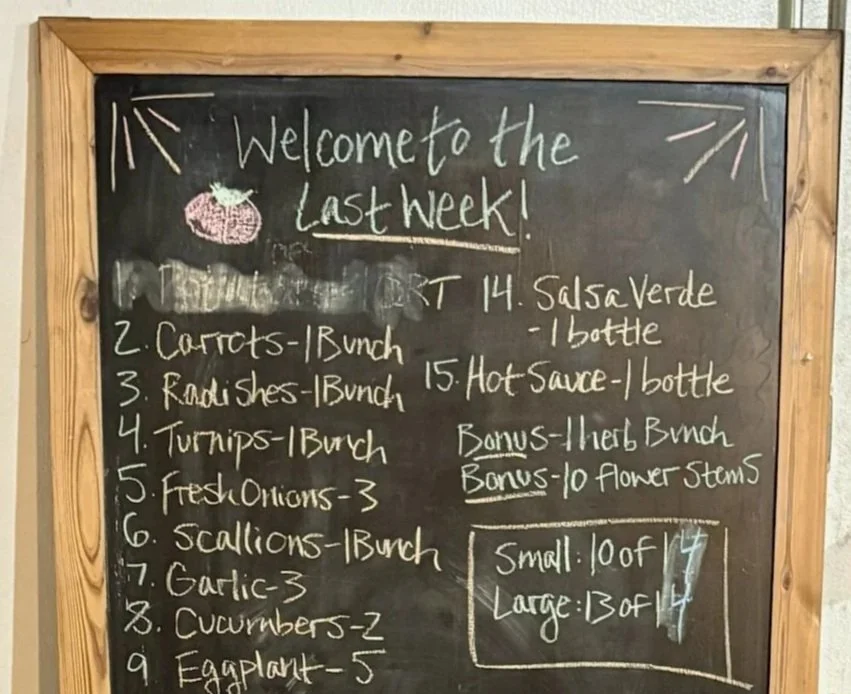 Welcome to the
Last Week!
1. QRT
2. Carrots-1Bunch
3. Radishes-1Bunch
4. Turnips-1Bunch
5. Fresh Onions-3
6. Scallions-1Bunch
7. Garlic-3
8. Cucumbers-2
9 Eggplant-5
14. Salsa Verde
-1 bottle
15. Hot Sauce-1 bottle
Bonus-1 herb Bunch
Bonus-10 flower stems
Small: 10 of 14
Large: 13 of 14